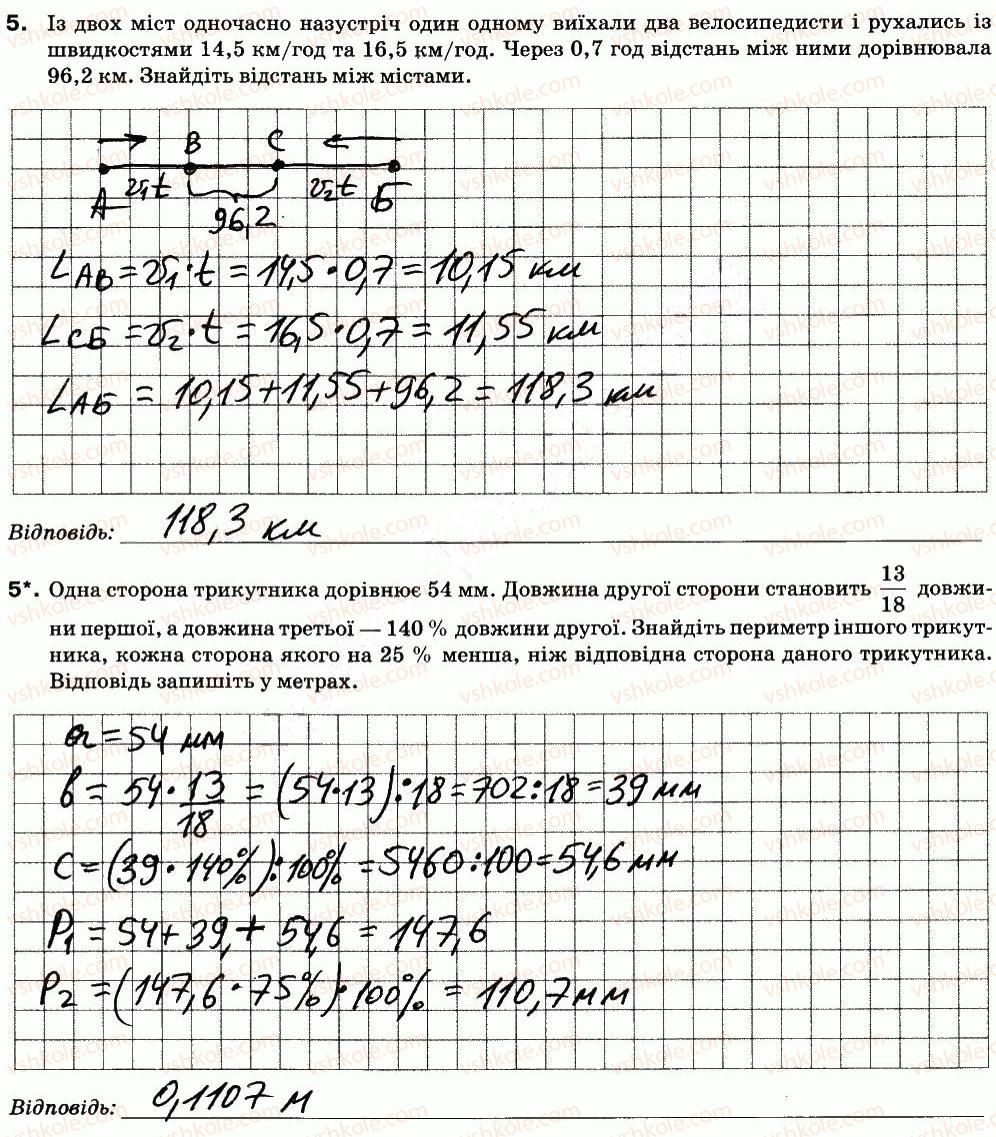 5. Із двох міст одночасно назустріч один одному виїхали два велосипедисти і рухались із
швидкостями 14,5 км/год та 16,5 км/год. Через 0,7 год відстань між ними дорівнювала
96,2 км. Знайдіть відстань між містами.
B C
A v₁t v₂t Б
96,2
L_AB = v₁·t = 14,5·0,7 = 10,15 км
L_CБ = v₂·t = 16,5·0,7 = 11,55 км
L_AБ = 10,15+11,55+96,2 = 118,3 км
Відповідь: 118,3 км
5*. Одна сторона трикутника дорівнює 54 мм. Довжина другої сторони становить 13/18 довжи-
ни першої, а довжина третьої — 140 % довжини другої. Знайдіть периметр іншого трикут-
ника, кожна сторона якого на 25 % менша, ніж відповідна сторона даного трикутника.
Відповідь запишіть у метрах.
a = 54 мм
b = 54·13/18 = (54·13):18 = 702:18 = 39 мм
c = (39·140%):100% = 5460:100 = 54,6 мм
P₁ = 54+39,+54,6 = 147,6
P₂ = (147,6·75%)·100% = 110,7 мм
Відповідь: 0,1107 м
vshkole.com